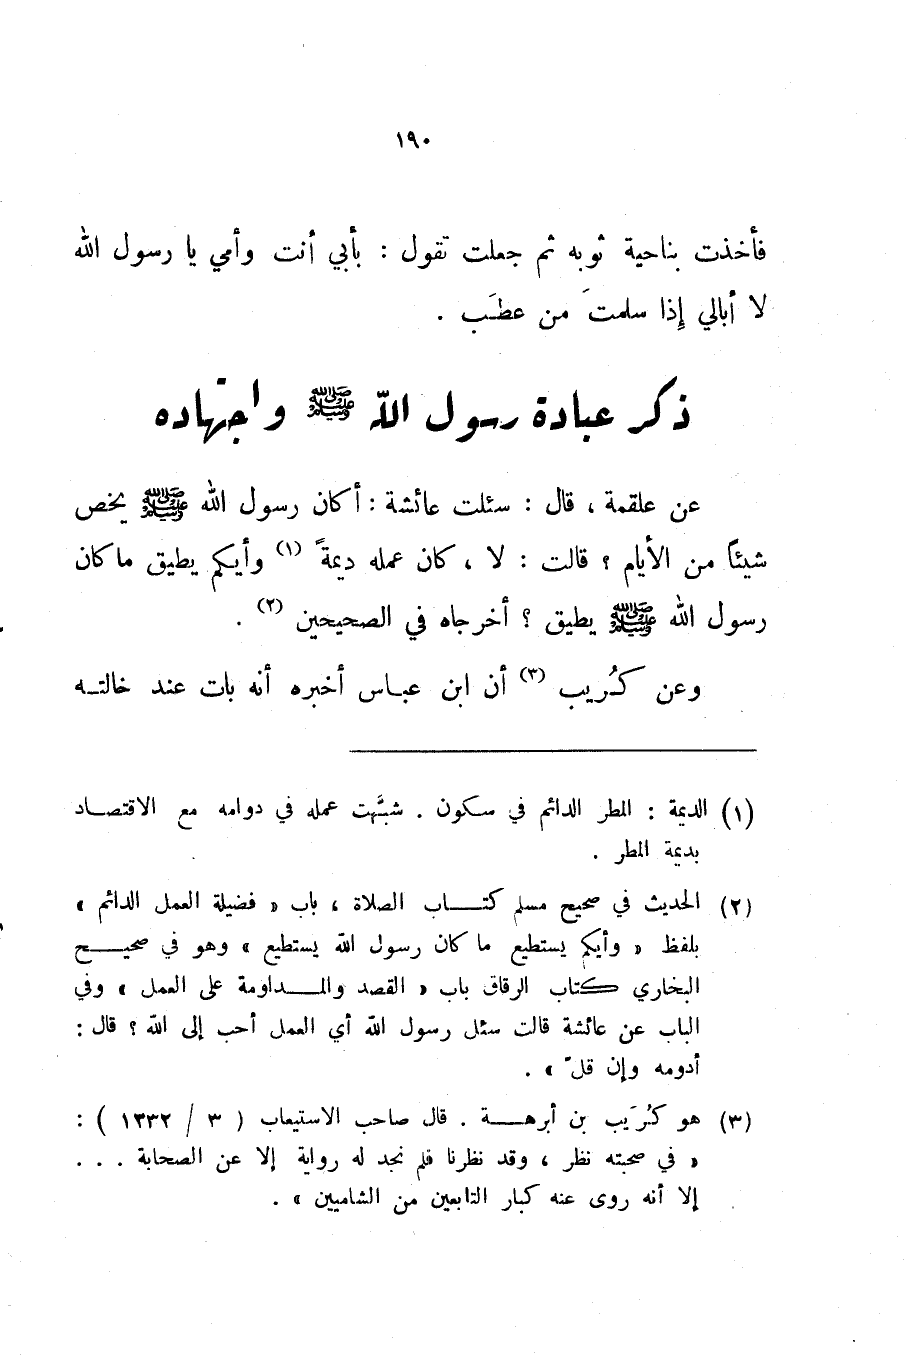 ١٩٠
فأخذت بناحية ثوبه ثم جعلت تقول : بأبي أنت وأمي يا رسول الله
لا أبالي إذا سلمتَ من عطَب .
ذكر عبادة رسول الله ﷺ واجتهاده
عن علقمة ، قال : سئلت عائشة : أكان رسول الله ﷺ يخص
شيئاً من الأيام ؟ قالت : لا ، كان عمله ديمةً (١) وأيكم يطيق ماكان
رسول الله ﷺ يطيق ؟ أخرجاه في الصحيحين (٢) .
وعن كُريب (٣) أن ابن عباس أخبره أنه بات عند خالته
(١) الديمة : المطر الدائم في سكون . شبَّهت عمله في دوامه مع الاقتصاد
بديمة المطر .
(٢) الحديث في صحيح مسلم كتاب الصلاة ، باب « فضيلة العمل الدائم »
بلفظ « وأيكم يستطيع ما كان رسول الله يستطيع » وهو في صحيح
البخاري كتاب الرقاق باب « القصد والمداومة على العمل » وفي
الباب عن عائشة قالت سئل رسول الله أي العمل أحب إلى الله ؟ قال :
أدومه وإن قلّ » .
(٣) هو كُرَيب بن أبرهة . قال صاحب الاستيعاب ( ٣ / ١٣٣٢ ) :
« في صحبته نظر ، وقد نظرنا فلم نجد له رواية إلا عن الصحابة . . .
إلا أنه روى عنه كبار التابعين من الشاميين » .